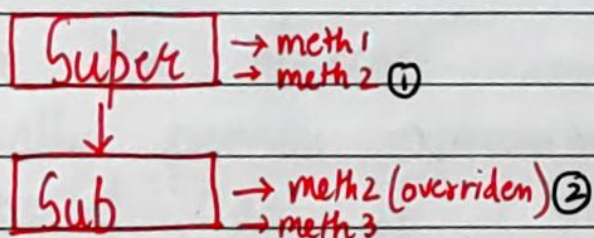 Super → meth 1
→ meth 2 ①
↓
Sub → meth2 (overriden) ②
→ meth 3